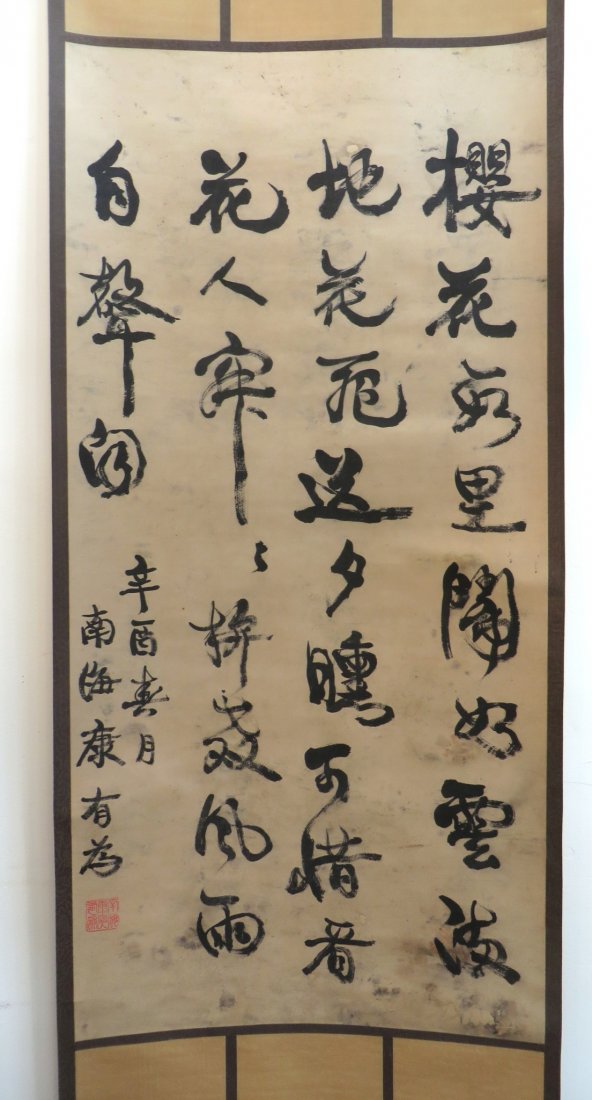 櫻花數里鬧如雲滿
地花送夕曛可惜看
花人寂々拚教風雨
自聲聞
辛酉春月
南海康有為